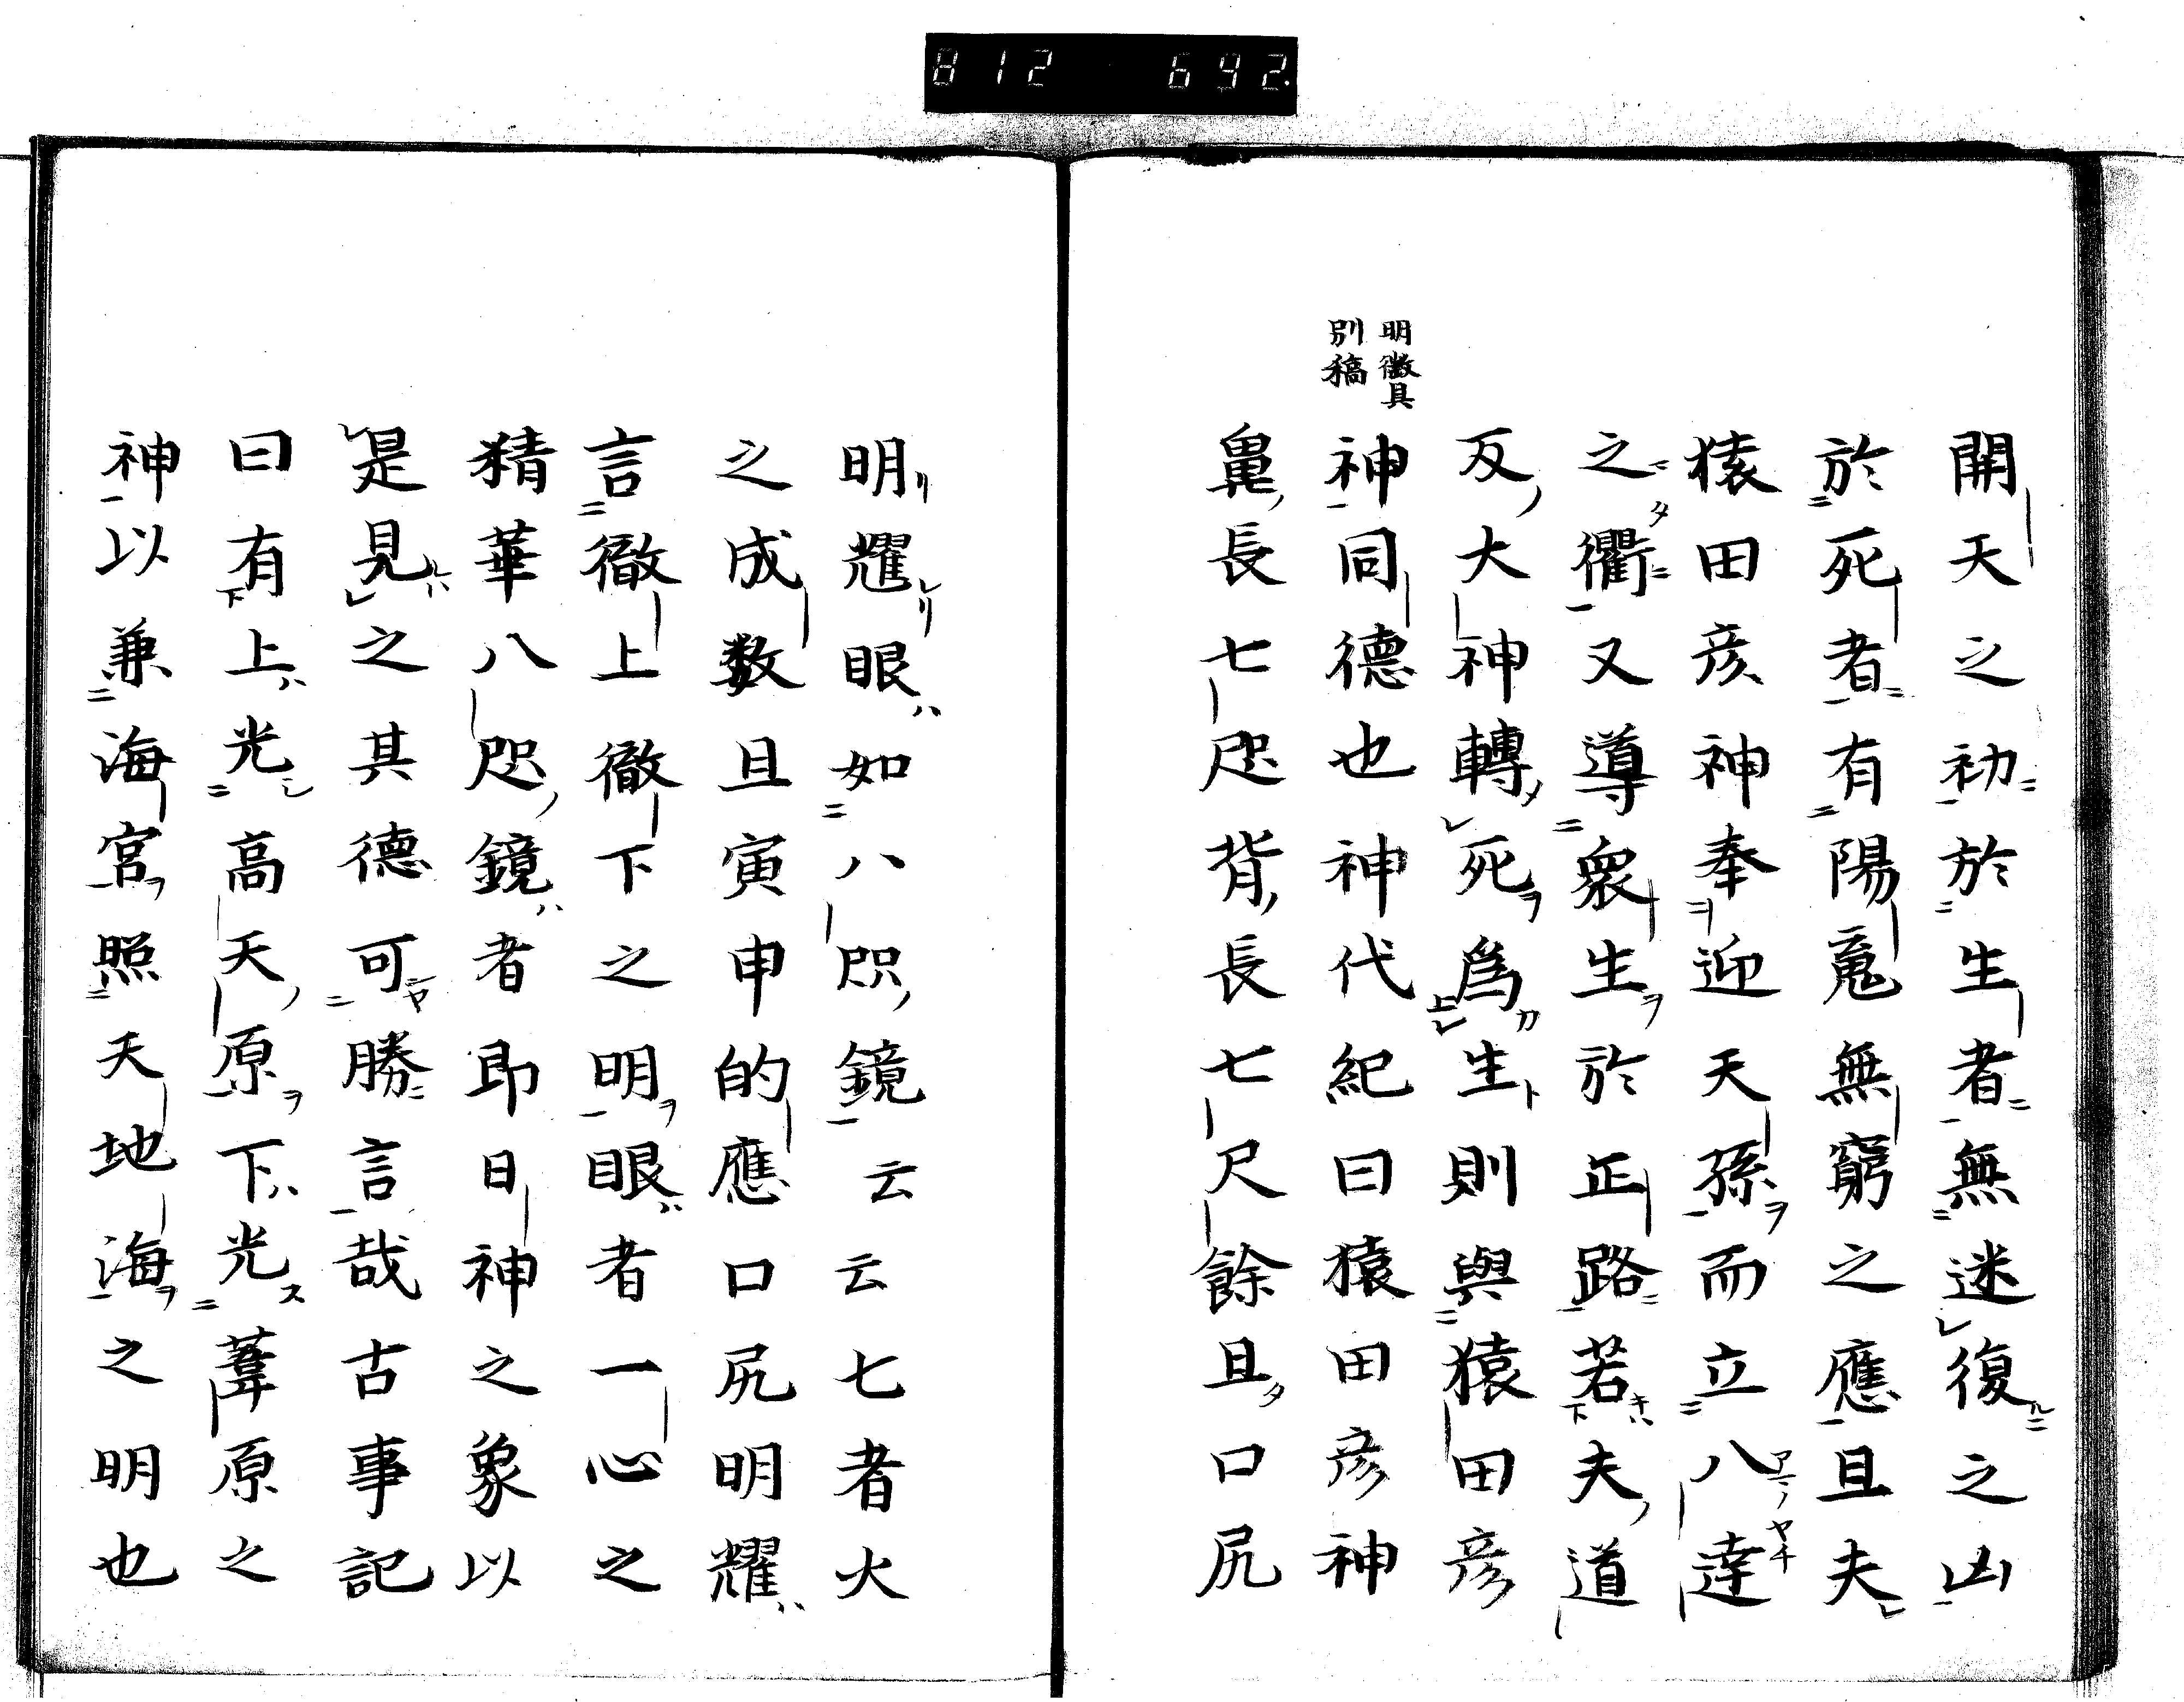 812 692.
開天之初於生者無迷復之凶
於死者有陽魂無窮之應且夫
猿田彦神奉迎天孫而立八達
之衢又導衆生於正路若夫道
反大神轉死爲生則與猿田彦
明徴具
別稿
神同德也神代紀曰猿田彦神
鼻長七咫背長七尺餘且口尻
明耀眼如八咫鏡云云七者火
之成数且寅申的應口尻明耀
言徹上徹下之明眼者一心之
精華八咫鏡者即日神之象以
是見之其德可勝言哉古事記
曰有上光高天原下光葦原之
神以兼海宮照天地海之明也